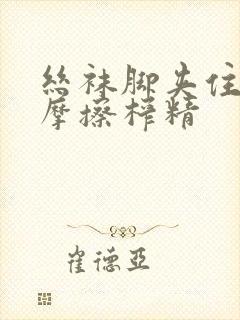 丝袜脚夹住
摩擦榨精
崔德亚